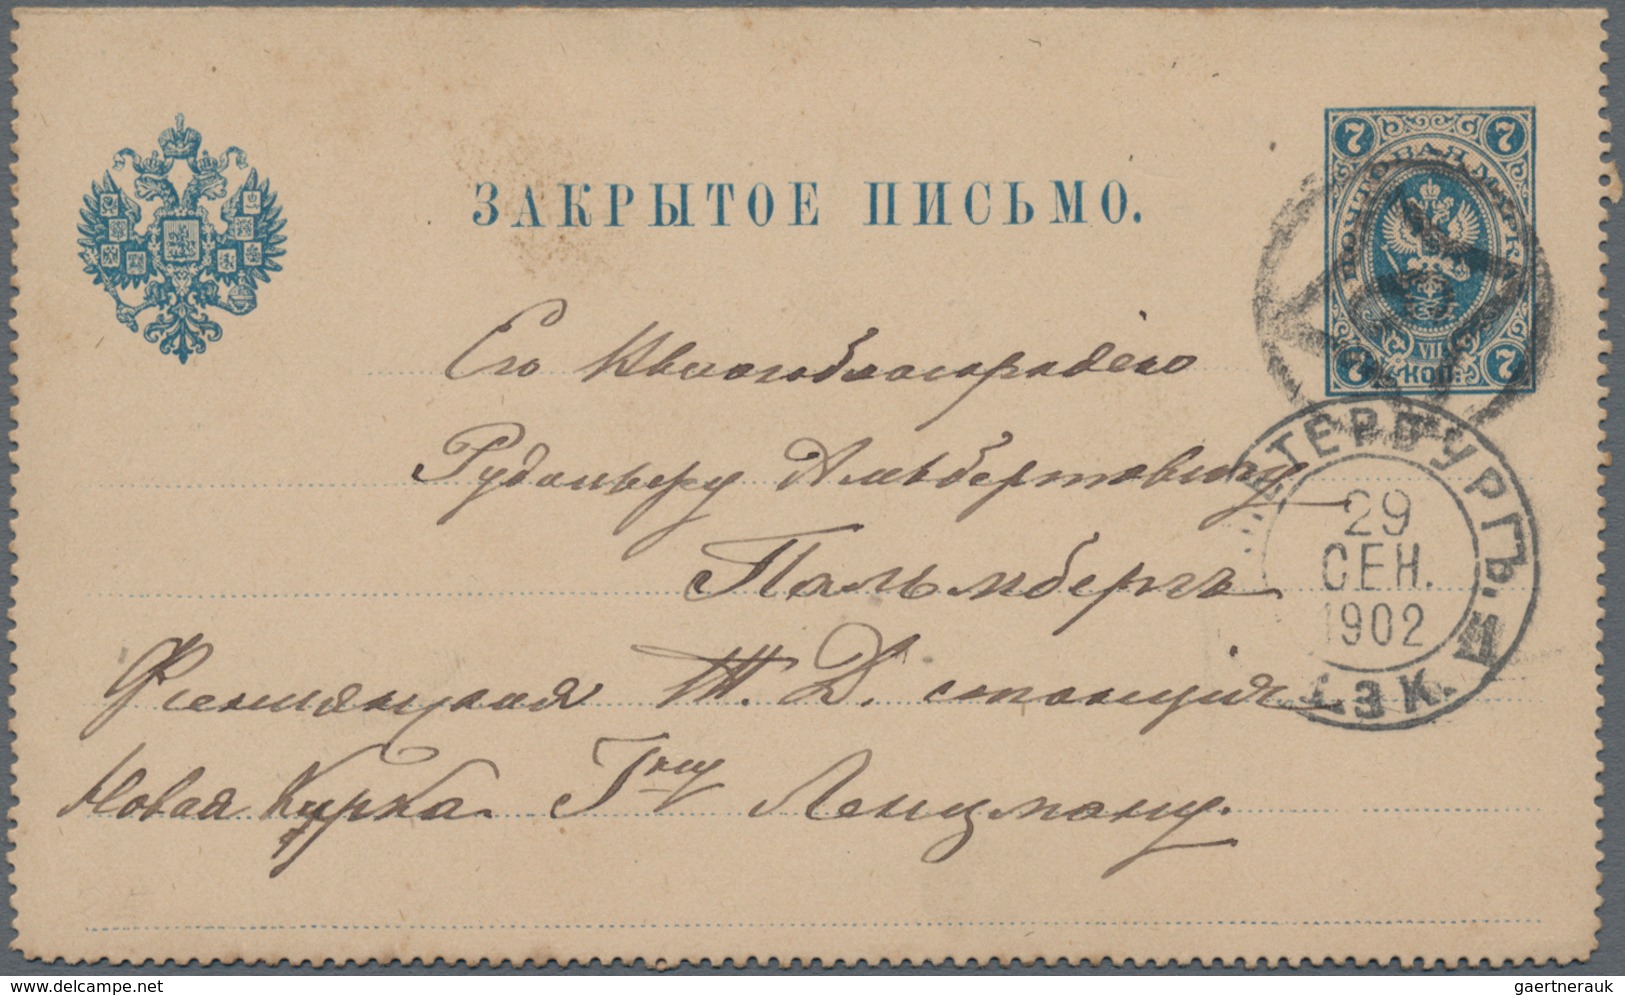 ЗАКРЫТОЕ ПИСЬМО.
7 7
ПОЧТОВАЯ МАРКА
VII
7 КОП: 7
Его
Рудольфу Альбертовичу
Пальмбергъ
ПЕТЕРБУРГЪ.
29
СЕН.
1902
Э К.
Финляндская Ж. Д. станция
Новая Кирка. Гну Ленцману.
delcampe.net
gaertnerauk